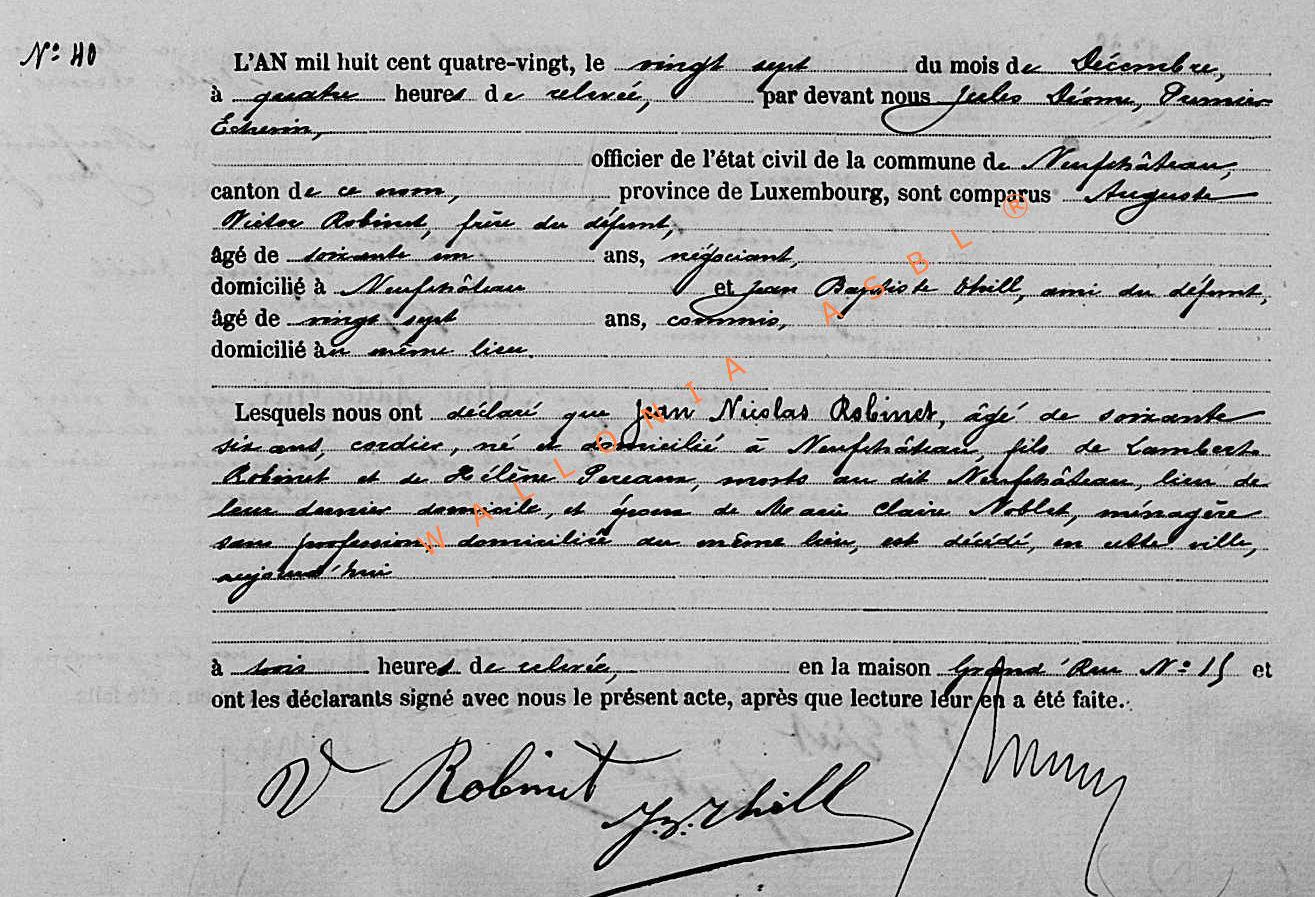 N° 40
L'AN mil huit cent quatre-vingt, le vingt sept du mois de Décembre,
à quatre heures de relevée, par devant nous Jules Premier
Échevin,
officier de l'état civil de la commune de Neufchâteau,
canton de ce nom, province de Luxembourg, sont comparus Auguste
Victor Robinet, frère du défunt,
âgé de soixante un ans, négociant,
domicilié à Neufchâteau et Jean Baptiste Thill, ami du défunt,
âgé de vingt sept ans, commis,
domicilié au même lieu.
Lesquels nous ont déclaré que Jean Nicolas Robinet, âgé de soixante
six ans, cordier, né et domicilié à Neufchâteau, fils de Lambert
Robinet et de Hélène morts au dit Neufchâteau, lieu de
leur dernier domicile, et époux de Marie Claire Noblet, ménagère
sans profession domiciliée au même lieu, est décédé, en cette ville,
aujourd'hui
à trois heures de relevée, en la maison Grand'Rue N° 15 et
ont les déclarants signé avec nous le présent acte, après que lecture leur en a été faite.
V Robinet
J.B. Thill
WALLONIA ASBL ®